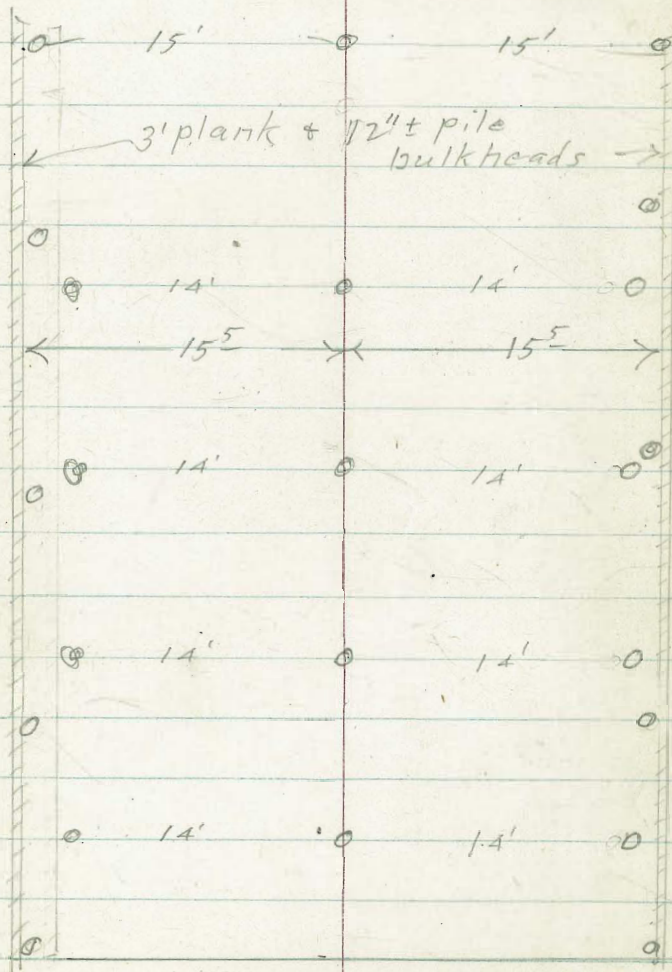 15' 15'
3' plank & 12"± pile
bulkheads
14' 14'
15⁵ 15⁵
14' 14'
14' 14'
14' 14'